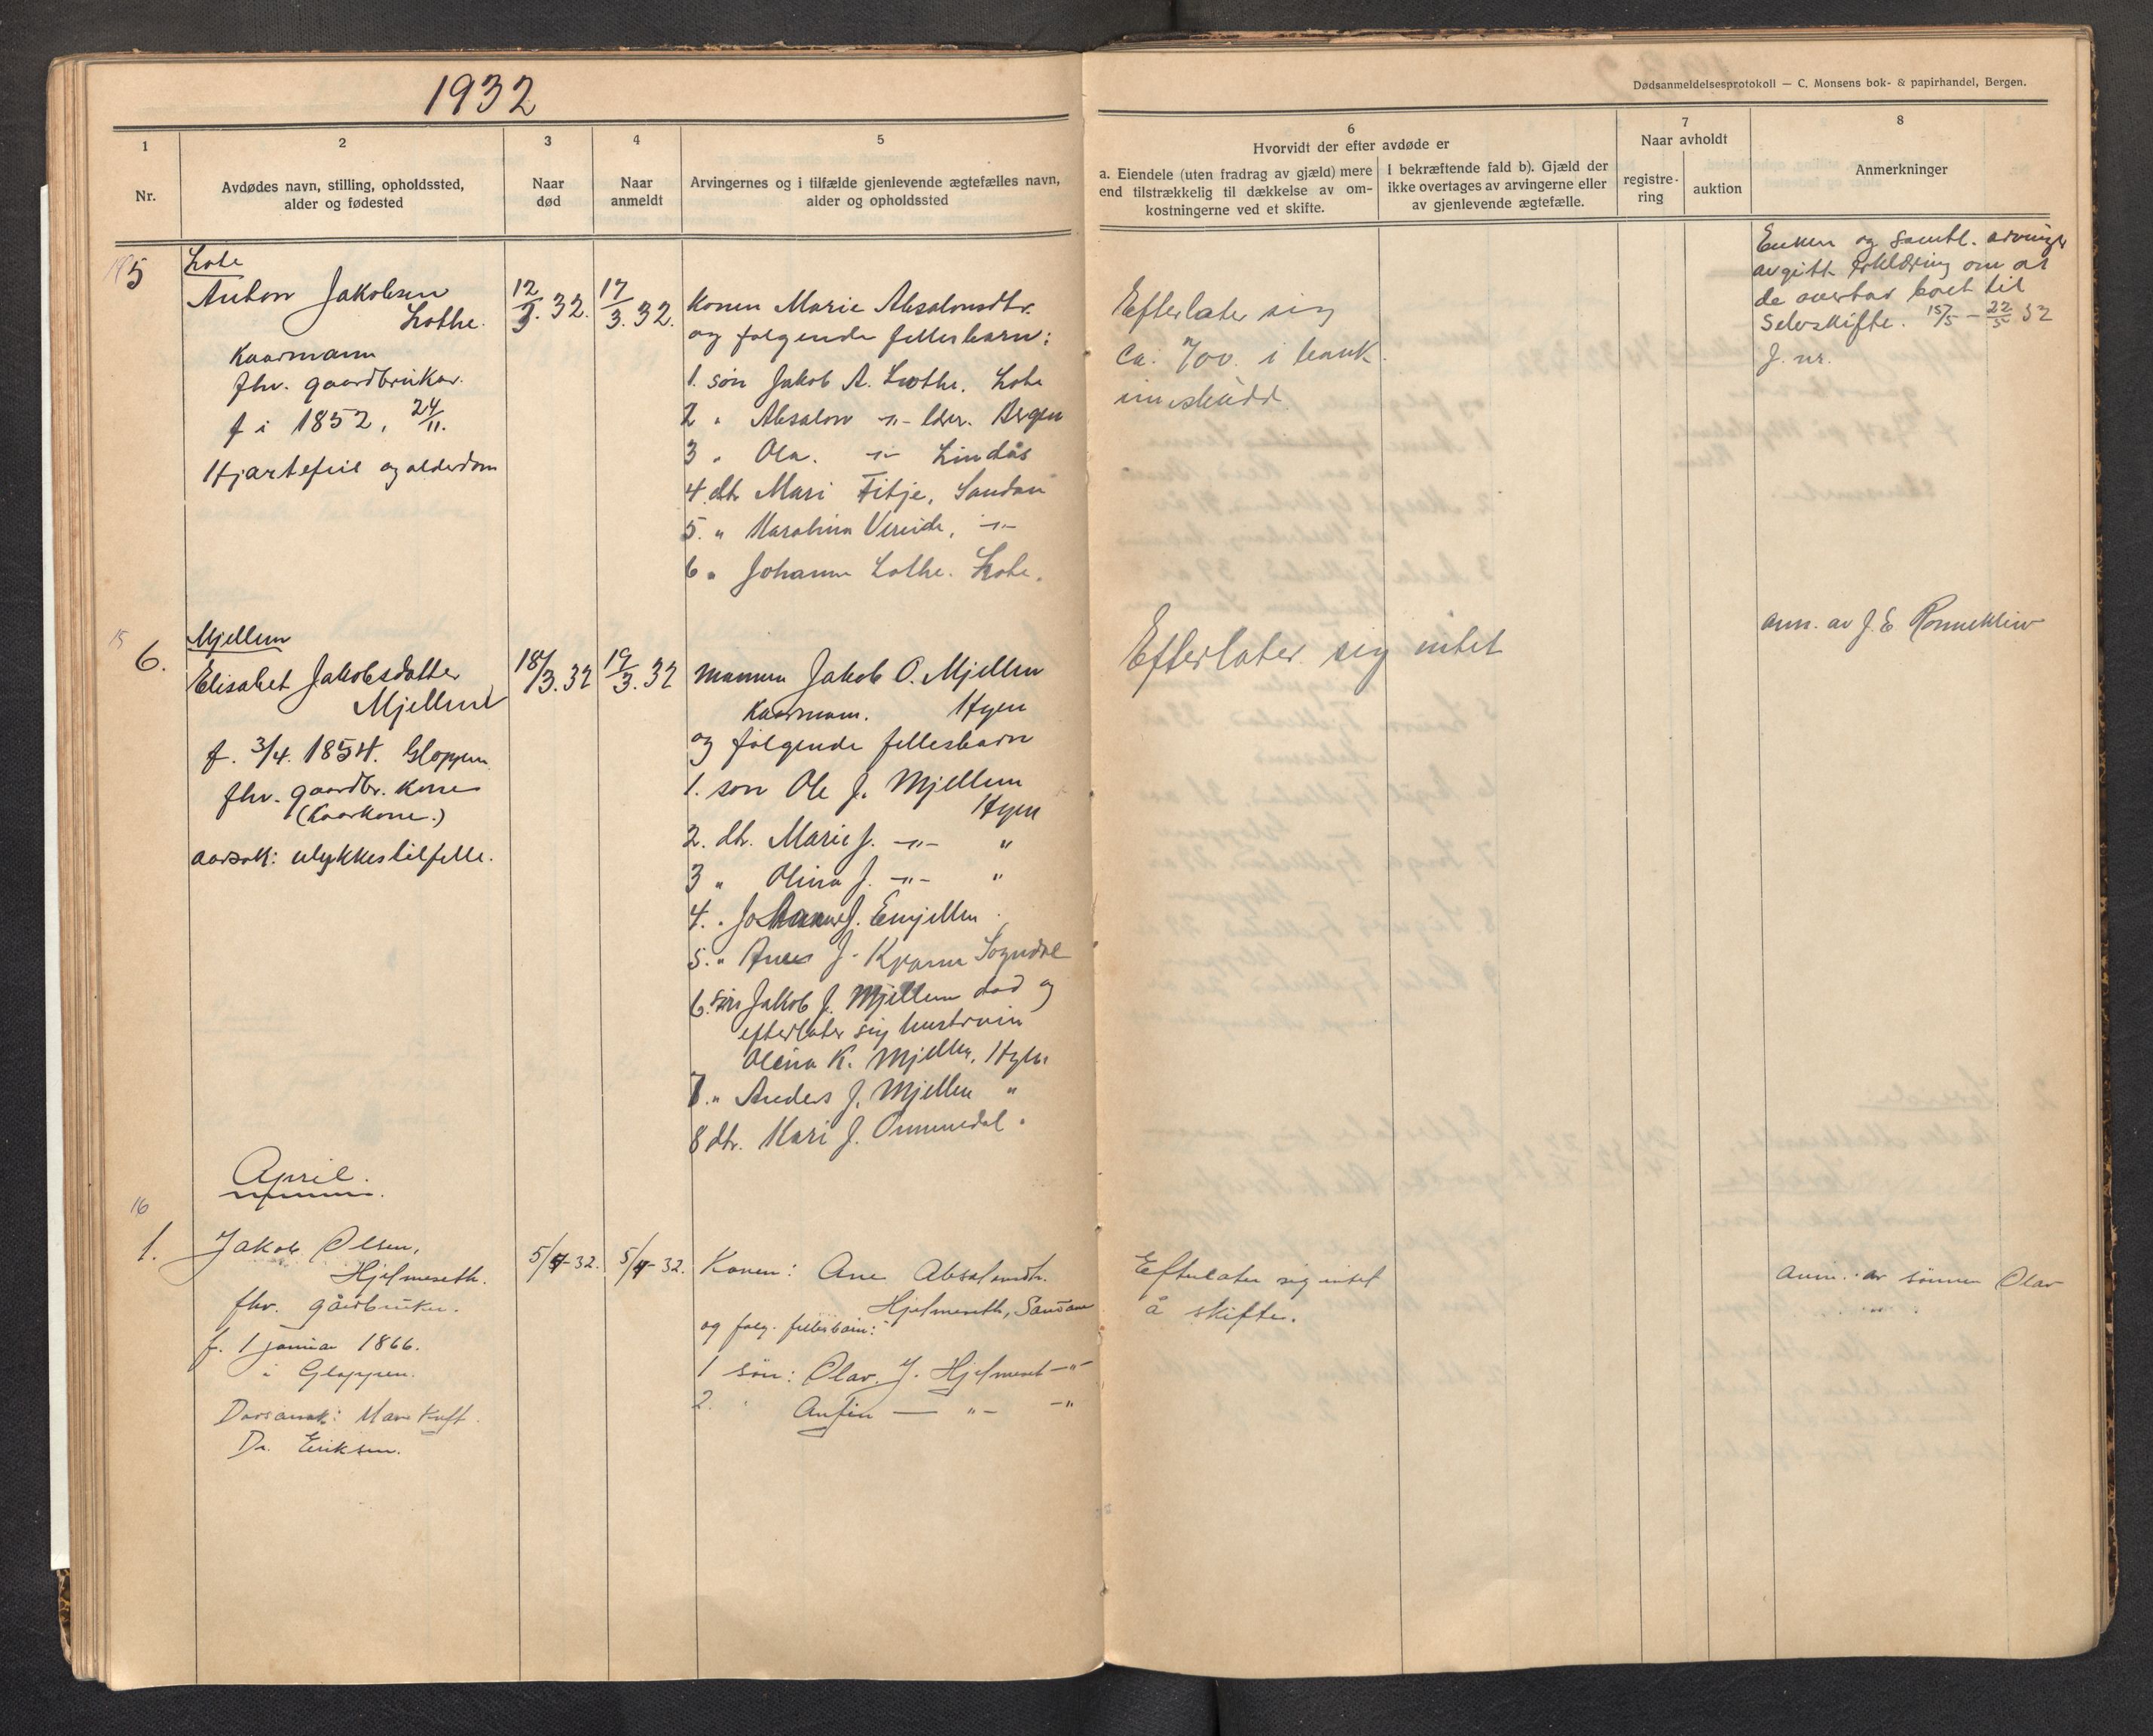 1932
Dødsanmeldelsesprotokoll — C. Monsens bok- & papirhandel, Bergen.
1
Nr.
2
Avdødes navn, stilling, opholdssted,
alder og fødested
3
Naar
død
4
Naar
anmeldt
5
Arvingernes og i tilfælde gjenlevende ægtefælles navn,
alder og opholdssted
6
Hvorvidt der efter avdøde er
a. Eiendele (uten fradrag av gjæld) mere
end tilstrækkelig til dækkelse av om-
kostningerne ved et skifte.
I bekræftende fald b). Gjæld der
ikke overtages av arvingerne eller
av gjenlevende ægtefælle.
7
Naar avholdt
registre-
ring
auktion
8
Anmerkninger
5
Lote
Anton Jakobsen
Lothe.
Kaarmann
fhv. gaardbruker.
f i 1852, 24/11.
Hjartefeil og alderdom
12/3. 32.
17/3. 32.
Konen Marie Absalonsdtr.
og følgende fellesbarn:
1. søn Jakob A. Lothe. Lote
2 " Absalon -"- lærer. Bergen
3 " Ola. -"- Lindås
4. dtr Mari Fitje, Sandane
5. " Karolina Vereide, -"-
6 " Johanne Lothe. Lote.
Efterlater sig
ca. 700. i bank
innskudd
Enken og samtl. arvinger
avgitt erklæring om at
de overtar boet til
selvskifte. 15/5 - 22/5 32
J. nr.
15
6.
Mjellem
Elisabet Jakobsdatter
Mjellem
f. 3/4. 1854. Gloppen
fhv. gaardbr. kone
(Kaarkone.)
aarsak: ulykkestilfelle.
18/3. 32
19/3. 32
Mannen Jakob O. Mjellem
Kaarmann. Hyen
og følgende fellesbarn
1. søn Ole J. Mjellem
Hyen
2. dtr. Marie J. -"- "
3 " Olina J. -"- "
4. " Johanne J. Emjellem
5. " Anne J. Kvame Sogndal
6. søn Jakob J. Mjellem død og
efterlater sig hustruen
Olina K. Mjellem, Hyen
7. " Anders J. Mjellem "
8 dtr. Kari J. Ommedal "
Efterlater sig intet
anm. av J. E Rønnekleiv
April.
16
1.
Jakob Olsen,
Hjelmeseth.
fhv. gårbruker.
f. 1 januar 1866.
i Gloppen.
Dødsårsak: Mave kreft.
Dr. Eriksen.
5/4-32.
5/4-32.
Konen: Ane Absalonsdtr.
Hjelmeseth, Sandane
og følg. fellesbarn:
1 søn: Olav. J. Hjelmeset -"-
2. " Anfin — "- -"
Efterlater sig intet
å skifte.
Anm. av sønnen Olav